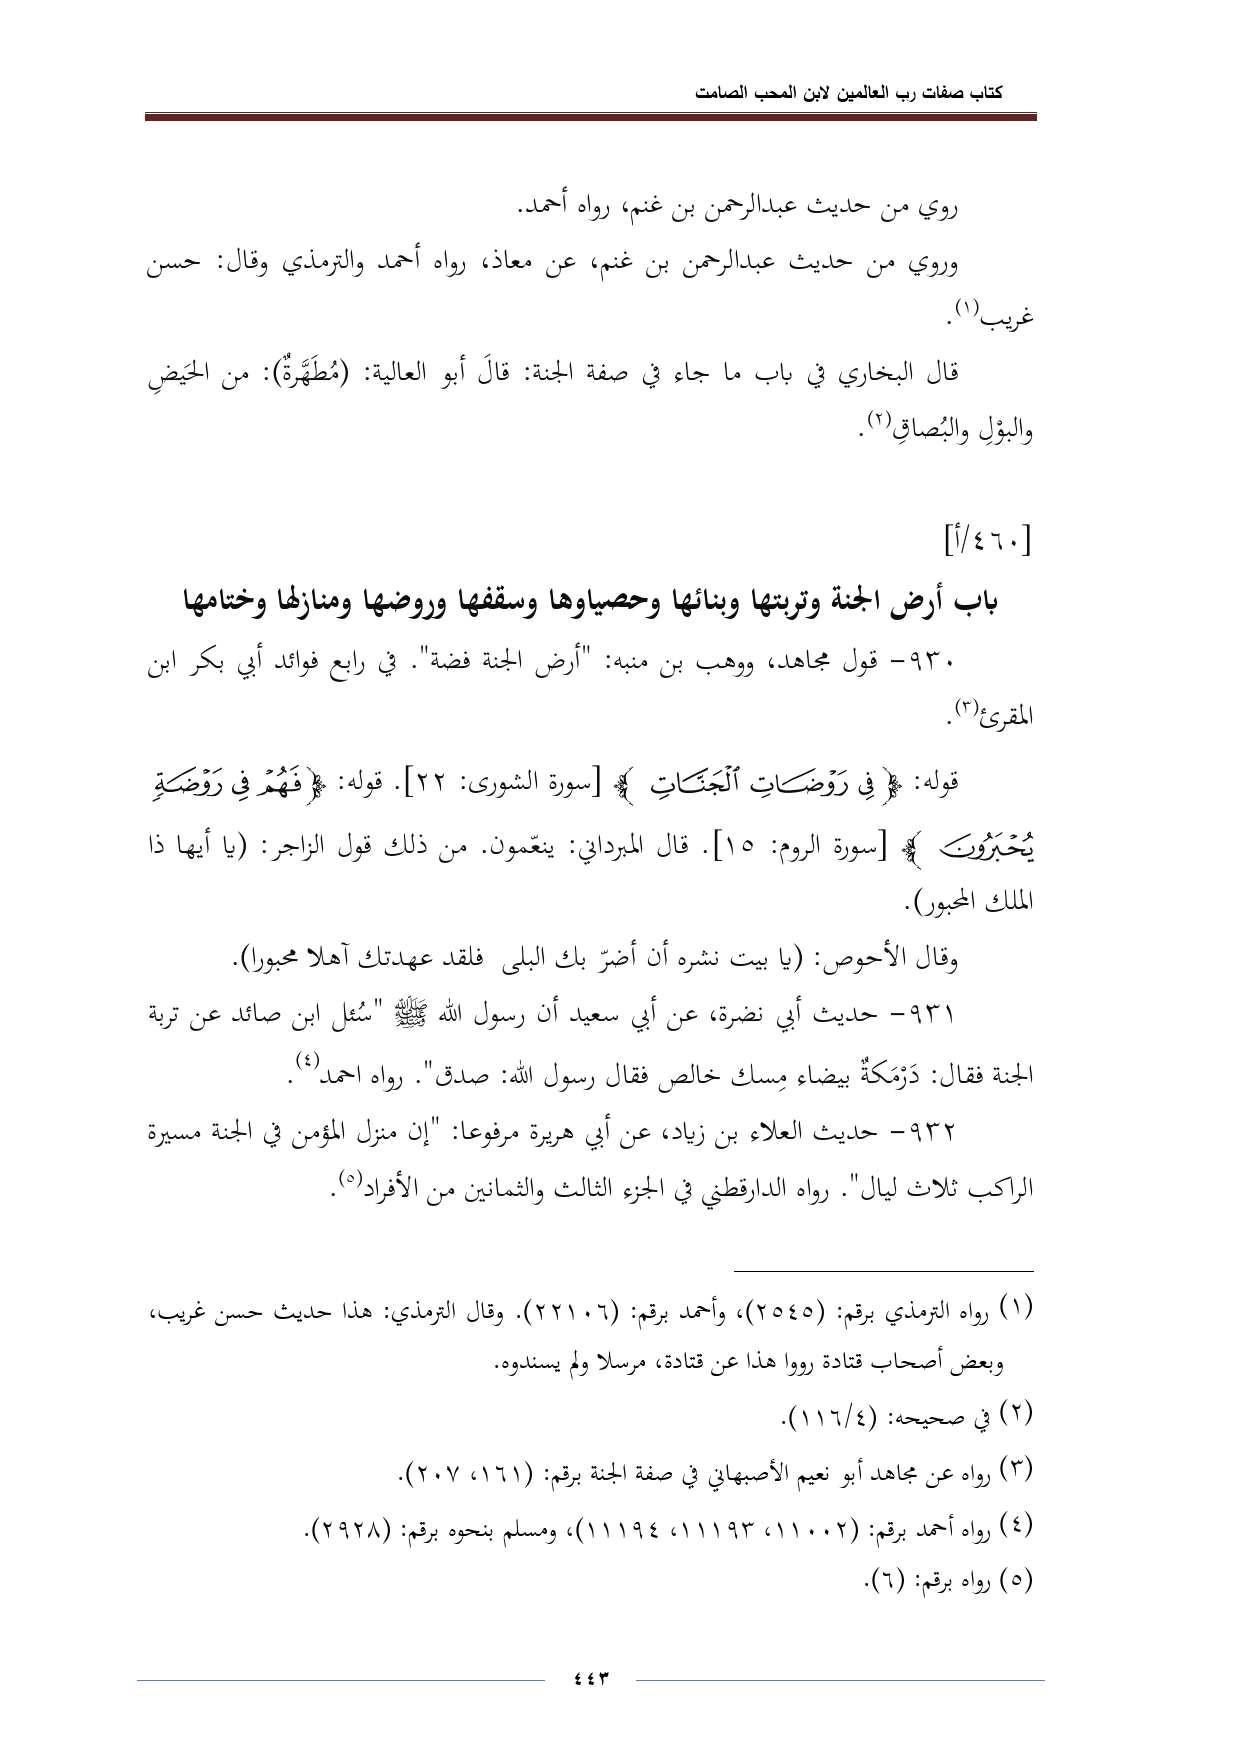 كتاب صفات رب العالمين لابن المحب الصامت
روي من حديث عبدالرحمن بن غنم، رواه أحمد.
وروي من حديث عبدالرحمن بن غنم، عن معاذ، رواه أحمد والترمذي وقال: حسن
غريب(١).
قال البخاري في باب ما جاء في صفة الجنة: قالَ أبو العالية: (مُطَهَّرةٌ): من الحَيَضِ
والبوْلِ والبُصاقِ(٢).
[٤٦٠/أ]
باب أرض الجنة وتربتها وبنائها وحصياوها وسقفها وروضها ومنازلها وختامها
٩٣٠- قول مجاهد، ووهب بن منبه: "أرض الجنة فضة". في رابع فوائد أبي بكر ابن
المقرئ(٣).
قوله: ﴿فِي رَوْضَاتِ ٱلْجَنَّاتِ ﴾ [سورة الشورى: ٢٢]. قوله: ﴿فَهُمْ فِي رَوْضَةٍ
يُحْبَرُونَ ﴾ [سورة الروم: ١٥]. قال المبرداني: ينعّمون. من ذلك قول الزاجر: (يا أيها ذا
الملك المحبور).
وقال الأحوص: (يا بيت نشره أن أضرّ بك البلى فلقد عهدتك آهلا محبورا).
٩٣١- حديث أبي نضرة، عن أبي سعيد أن رسول الله ﷺ "سُئل ابن صائد عن تربة
الجنة فقال: دَرْمَكةٌ بيضاء مِسك خالص فقال رسول الله: صدق". رواه احمد(٤).
٩٣٢- حديث العلاء بن زياد، عن أبي هريرة مرفوعا: "إن منزل المؤمن في الجنة مسيرة
الراكب ثلاث ليال". رواه الدارقطني في الجزء الثالث والثمانين من الأفراد(٥).
(١) رواه الترمذي برقم: (٢٥٤٥)، وأحمد برقم: (٢٢١٠٦). وقال الترمذي: هذا حديث حسن غريب،
وبعض أصحاب قتادة رووا هذا عن قتادة، مرسلا ولم يسندوه.
(٢) في صحيحه: (١١٦/٤).
(٣) رواه عن مجاهد أبو نعيم الأصبهاني في صفة الجنة برقم: (١٦١، ٢٠٧).
(٤) رواه أحمد برقم: (١١٠٠٢، ١١١٩٣، ١١١٩٤)، ومسلم بنحوه برقم: (٢٩٢٨).
(٥) رواه برقم: (٦).
٤٤٣